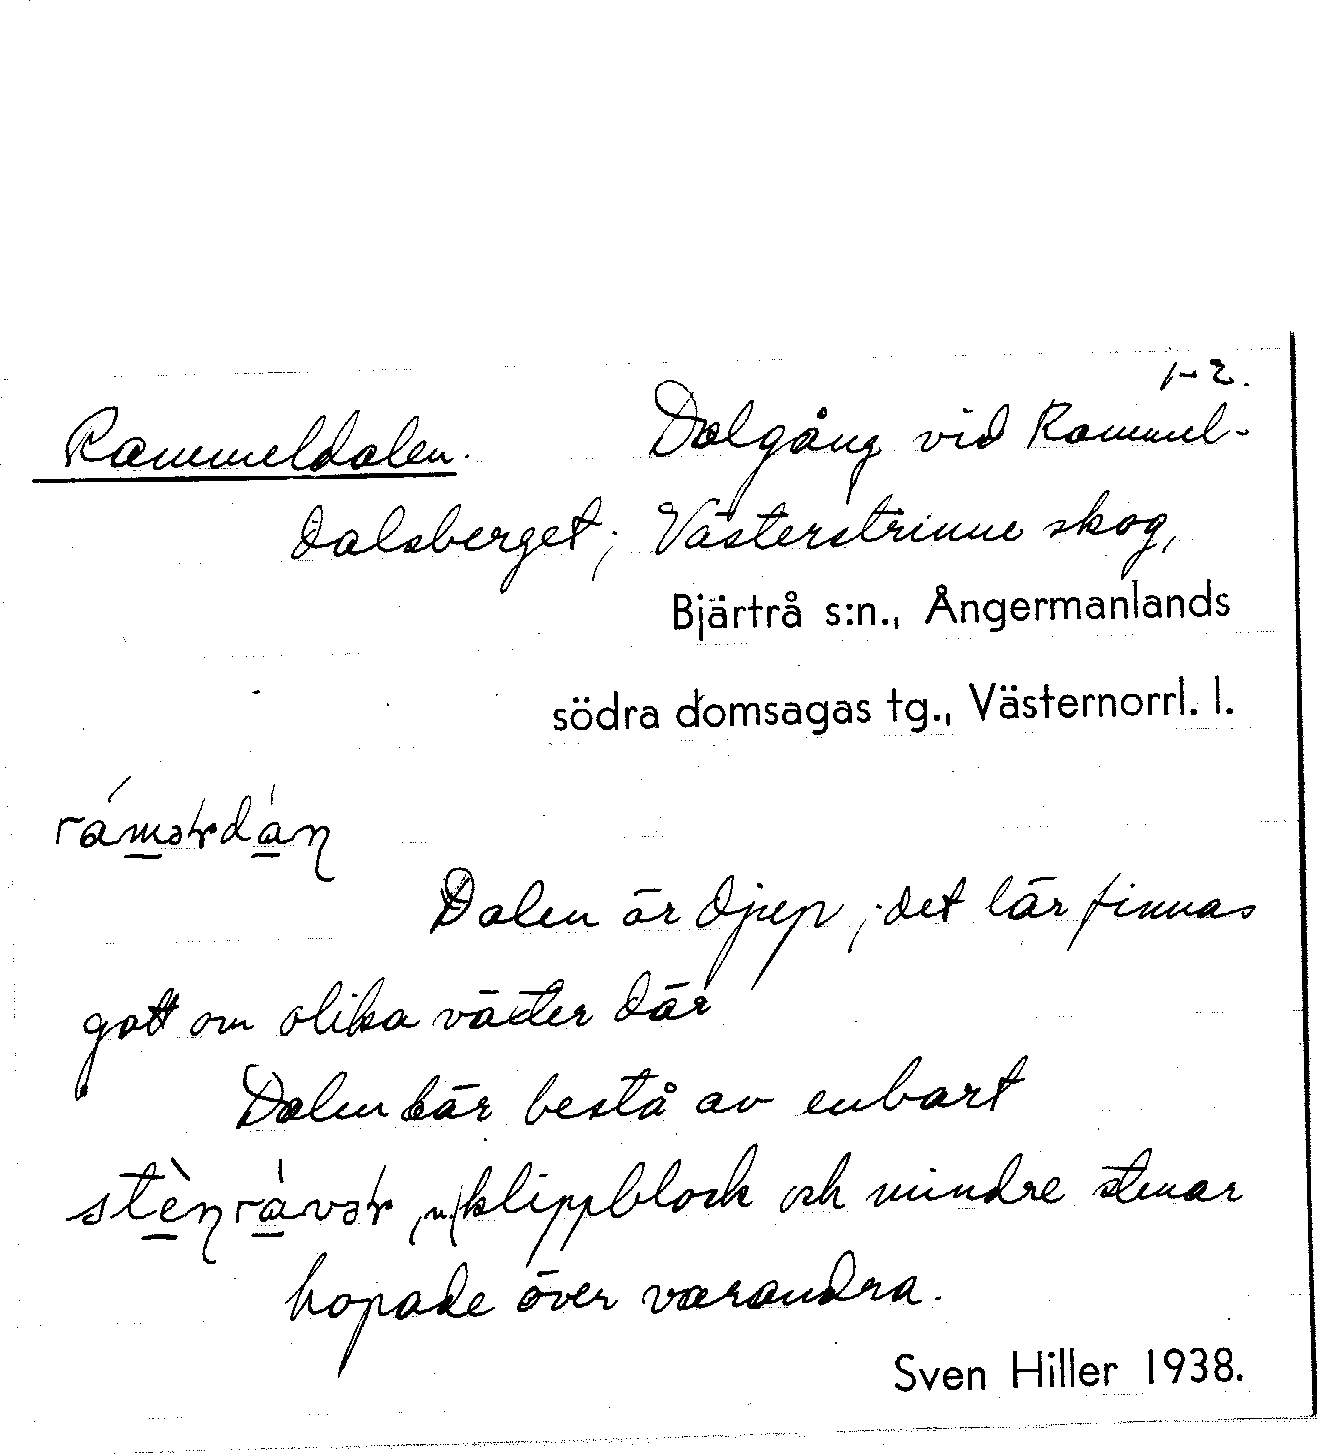 1-2.
Rammeldalen. Dalgång vid Rammel-
dalsberget; Västerstrinne skog,
Bjärtrå s:n., Ångermanlands
södra domsagas tg., Västernorrl. l.
Dalen är djup; det lär finnas
gott om olika växter där
Dalen lär bestå av enbart
klippblock och mindre stenar
hopade över varandra.
Sven Hiller 1938.